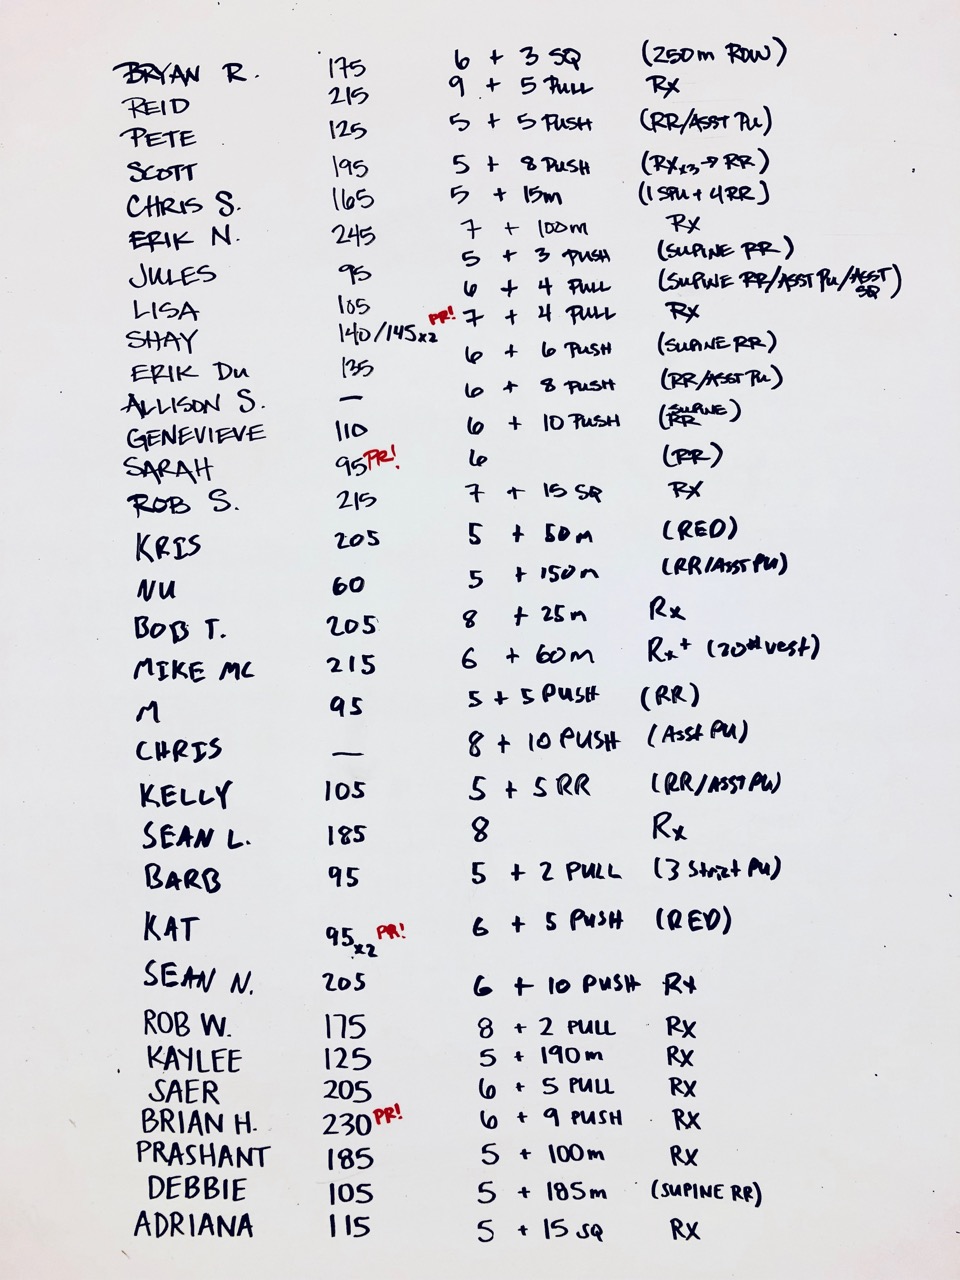 BRYAN R. 175 6 + 3 SQ (250m ROW)
REID 215 9 + 5 PULL Rx
PETE 125 5 + 5 PUSH (RR/ASST PU)
SCOTT 195 5 + 8 PUSH (RXx3→RR)
CHRIS S. 165 5 + 15m (1 SPU + 4 RR)
ERIK N. 245 7 + 100m Rx
JULES 95 5 + 3 PUSH (SUPINE RR)
LISA 105 6 + 4 PULL (SUPINE RR/ASST PU/ASST SQ)
SHAY 140/145x2 PR! 7 + 4 PULL Rx
ERIK Du 135 6 + 6 PUSH (SUPINE RR)
ALLISON S. — 6 + 8 PUSH (RR/ASST PU)
GENEVIEVE 110 6 + 10 PUSH (SUPINE RR)
SARAH 95 PR! 6 (RR)
ROB S. 215 7 + 15 SQ RX
KRIS 205 5 + 50m (RED)
NU 60 5 + 150m (RR/ASST PU)
BOB T. 205 8 + 25m Rx
MIKE MC 215 6 + 60m Rx+ (20# vest)
M 95 5 + 5 PUSH (RR)
CHRIS — 8 + 10 PUSH (Asst PU)
KELLY 105 5 + 5 RR (RR/ASST PU)
SEAN L. 185 8 Rx
BARB 95 5 + 2 PULL (3 Strict PU)
KAT 95x2 PR! 6 + 5 PUSH (RED)
SEAN N. 205 6 + 10 PUSH Rx
ROB W. 175 8 + 2 PULL RX
KAYLEE 125 5 + 190m RX
SAER 205 6 + 5 PULL RX
BRIAN H. 230 PR! 6 + 9 PUSH RX
PRASHANT 185 5 + 100m RX
DEBBIE 105 5 + 185m (SUPINE RR)
ADRIANA 115 5 + 15 SQ RX